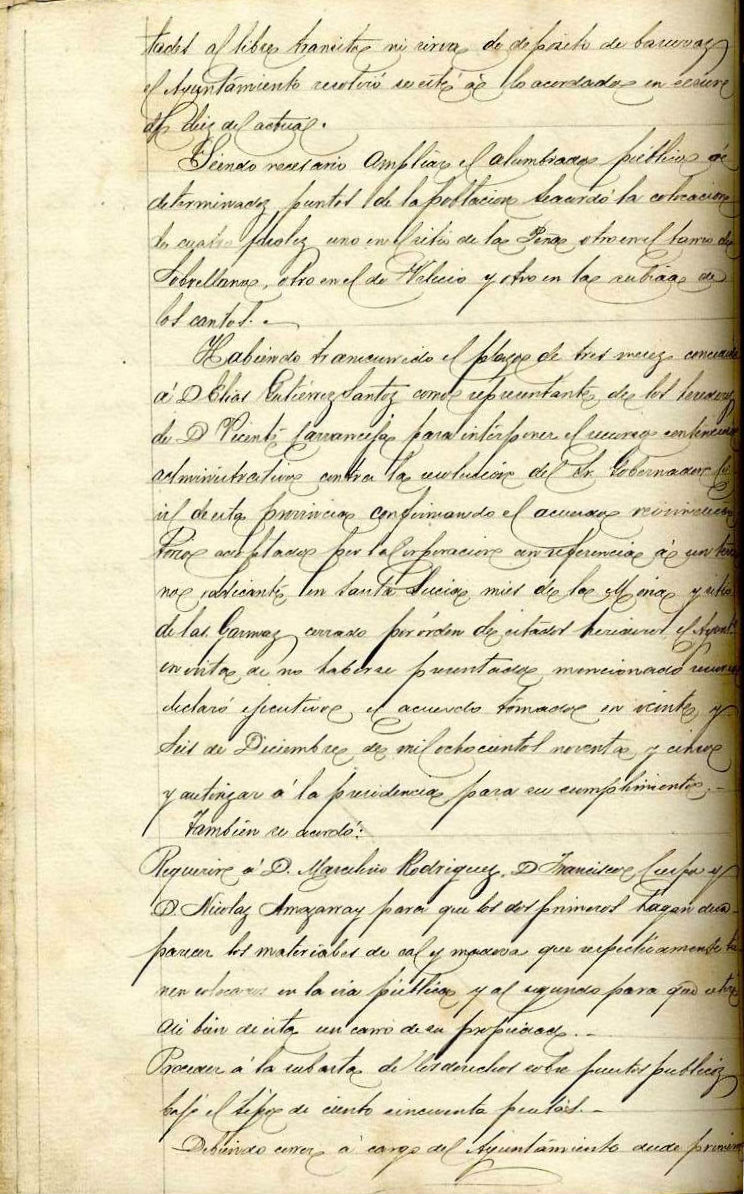 tades al libre transito ni sirva de deposito de basuras
el Ayuntamiento resolvió se esté á lo acordado en sesion
de diez del actual.
Siendo necesario ampliar el alumbrado público á
determinados puntos de la poblacion se acordó la colocacion
de cuatro faroles uno en el sitio de la Peña otro en el barrio de
Sobrellano, otro en el de Velecio y otro en la subida de
los cantos.
Habiendo transcurrido el plazo de tres meses concedido
á D. Elias Gutiérrez Santos como representante de los herederos
de D. Vicente Carranceja para interponer el recurso contencioso
administrativo contra la resolución del Sr. Gobernador Ci
vil de esta provincia confirmando el acuerdo reivindica
torio adoptado por la Corporacion con referencia á un terre
no radicante en Santa Lucia mies de la y sitio
de las Garmas cerrado por órden de citados herederos el Aynt.º
en vista de no haberse presentado mencionado recurso
declaró ejecutivo el acuerdo tomado en veinte y
seis de Diciembre de mil ochocientos noventa y cinco
y autorizar á la presidencia para su cumplimiento.
Tambien se acordó:
Requerir á D. Marcelino Rodriguez, D. Francisco Cuespo y
D. Nicolas Amazarray para que los dos primeros hagan desa
parecer los materiales de cal y madera que respectivamente tie
nen colocados en la via pública y al segundo para que retire
asi bien de esta un carro de su propiedad.
Proceder á la subasta de los derechos sobre puestos publicos
bajo el tipo de ciento cincuenta pesetas.
Debiendo correr á cargo del Ayuntamiento desde primero